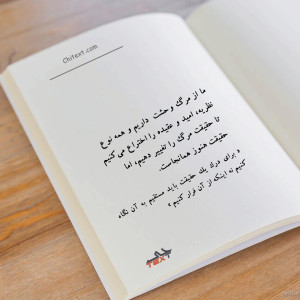 Chitext.com
ما از مرگ وحشت داریم و همه نوع
نظریه، امید و عقیده را اختراع می کنیم
تا حقیقت مرگ را تغییر دهیم، اما
حقیقت هنوز همانجاست.
و برای درک یک حقیقت باید مستقیم به آن نگاه
کنیم نه اینکه از آن فرار کنیم ،
TEXT